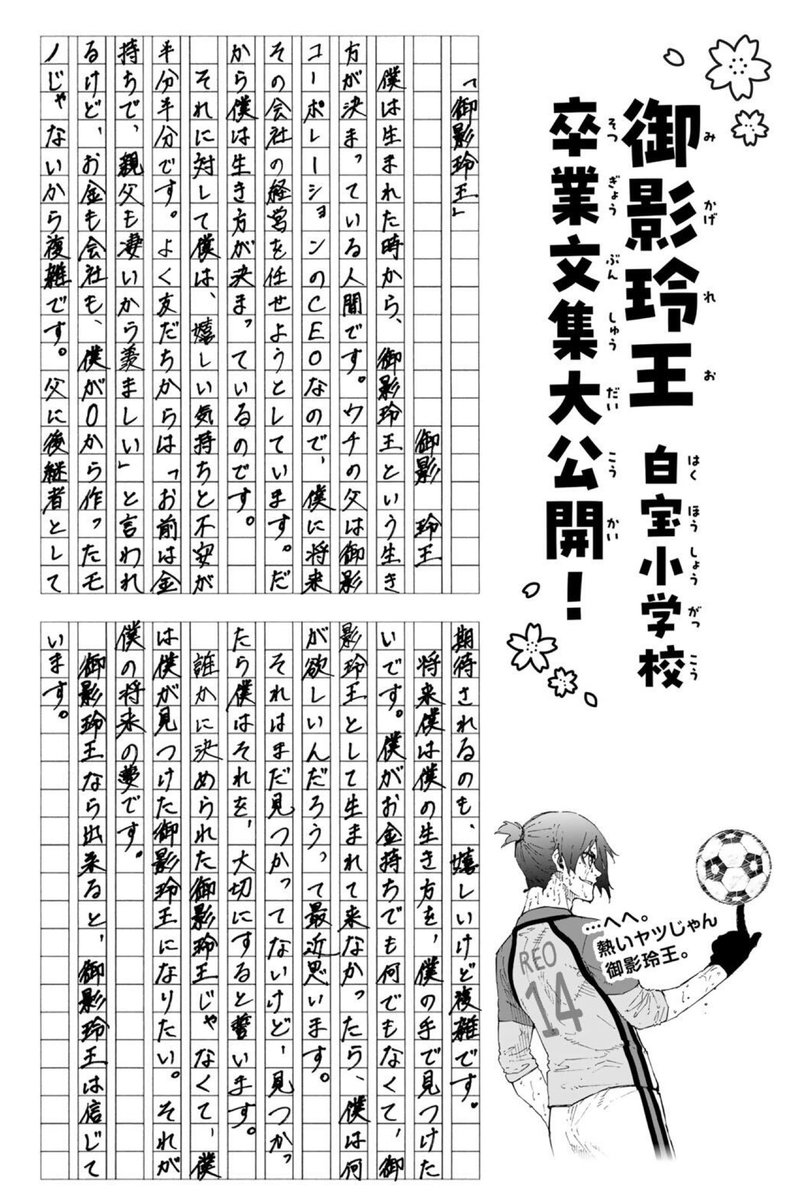 みかげれお
御影玲王
はくほうしょうがっこう
白宝小学校
そつぎょうぶんしゅうだいこうかい
卒業文集大公開！
「御影玲王」
御影　玲王
僕は生まれた時から、御影玲王という生き
方が決まっている人間です。ウチの父は御影
コーポレーションのCEOなので、僕に将来
その会社の経営を任せようとしています。だ
から僕は生き方が決まっているのです。
それに対して僕は、嬉しい気持ちと不安が
半分半分です。よく友だちからは「お前は金
持ちで、親父も凄いから羨ましい」と言われ
るけど、お金も会社も、僕が0から作ったモ
ノじゃないから複雑です。父に後継者として
期待されるのも、嬉しいけど複雑です。
将来僕は僕の生き方を、僕の手で見つけた
いです。僕がお金持ちでも何でもなくて、御
影玲王として生まれて来なかったら、僕は何
が欲しいんだろうって最近思います。
それはまだ見つかってないけど、見つかっ
たら僕はそれを、大切にすると誓います。
誰かに決められた御影玲王じゃなくて、僕
は僕が見つけた御影玲王になりたい。それが
僕の将来の夢です。
御影玲王なら出来ると、御影玲王は信じて
います。
…へへ。
熱いヤツじゃん
御影玲王。
REO
14